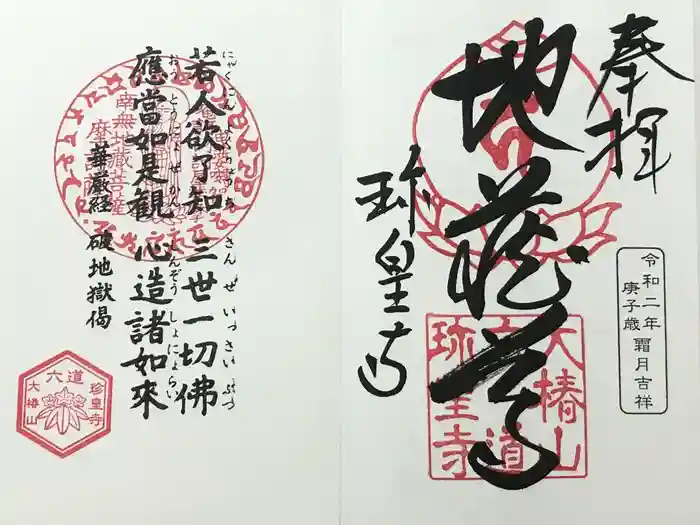 奉拝
地蔵尊
珎皇寺
令和二年
庚子歳 霜月吉祥
大椿山
六道
珎皇寺
若人欲了知 三世一切佛
にゃくにんよくりょうち さんぜいっさいぶつ
應當如是觀 心造諸如來
おうとうにょぜかん しんぞうしょにょらい
華厳経 破地獄偈
南無地蔵菩薩
六道
珍皇寺
大椿山